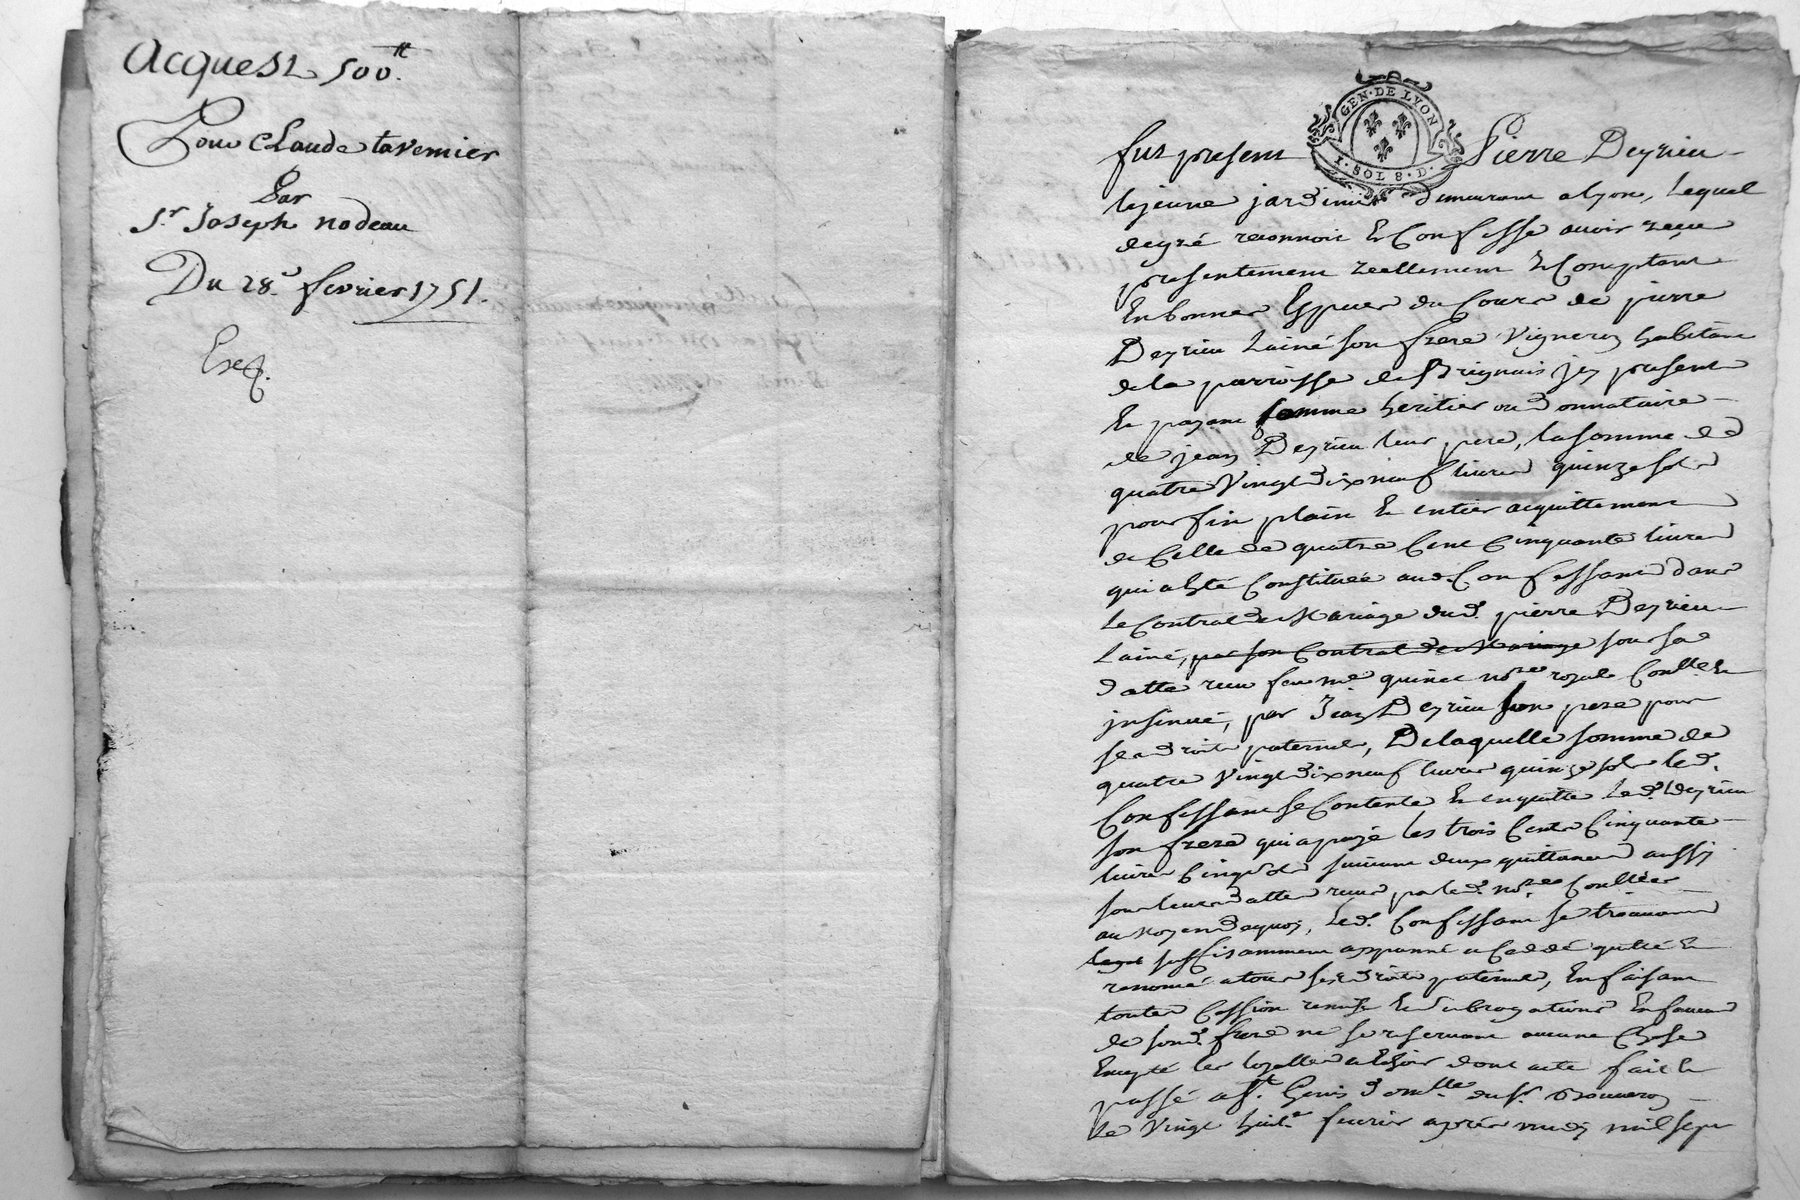 Acquest 500.tt
Pour Claude tavernier
Par
Sr. Joseph nodeau
Du 28e. fevrier 1751.
Exp.
GEN. DE LYON
1. SOL 8. D.
fut present Pierre Deyrieu
lejeune jardinier demeurant a lyon, lequel
degré reconnoit Et Confesse avoir reçu
presentement reellement Et Comptant
En bonnes Especes du Cours de pierre
Deyrieu Lainé son frere Vigneron habitant
de la parroisse de Brignais jcy present
Et payant comme heritier ou donnataire
de jean Deyrieu leur pere, la somme de
quatre Vingt dix neuf livres quinze sols
pour fin plain Et entier acquittement
de Celle de quatre Cent Cinquante livres
qui a Eté Constituée aud. Confessant dans
Le Contrat de Mariage dud. pierre Deyrieu
Lainé, par son Contrat de Mariage sous sa
datte reçu feu me quinet nore royal Conllé Et
insinué, par Jean Deyrieu son pere pour
ses droits paternels, De laquelle somme de
quatre Vingt dix neuf livres quinze sols led.
Confessant se Contente Et en quitte Led. Deyrieu
son frere qui a payé les trois Cents Cinquante
livres Cinq sols suivant deux quittances aussy
sous leurs dattes reçues par led. nore Conllées
au Moyen dequoy, Led. Confessant se trouvant
suffisamment appanné a Cedé quitté Et
renoncé a tous ses droits paternels, En faisant
toutes Cession remise Et subrogations En faveur
de sond. frere ne se reservant aucune Chose
Excepté les loyalles a Echoir dont acte fait Et
passé a St. Genis domlle. du Sr.
Le Vingt huite fevrier après midy mil sept